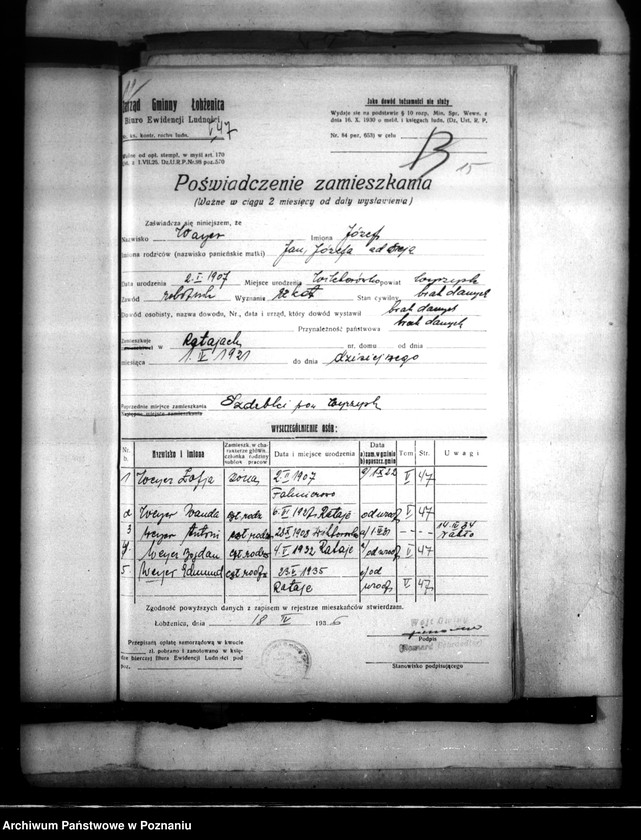 Zarząd Gminny Łobżenica
Biuro Ewidencji Ludności
Nr. ks. kontr. ruchu ludn. V 47
Wolne od opł. stempl. w myśl art. 170
Ust. z 1.VII.26. Dz.U.R.P.Nr.98 poz.570
Jako dowód tożsamości nie służy
Wydaje się na podstawie § 10 rozp. Min. Spr. Wewn. z
dnia 16. X. 1930 o meld. i księgach ludn. (Dz. Ust. R. P.
Nr. 84 poz. 653) w celu
B
15
Poświadczenie zamieszkania
(Ważne w ciągu 2 miesięcy od daty wystawienia)
Zaświadcza się niniejszem, że
Nazwisko Weyer Imiona Józef
Imiona rodziców (nazwisko panieńskie matki) Jan, Józefa
Data urodzenia 2. I. 1907 Miejsce urodzenia powiat Wyrzysk
Zawód robotnik Wyznanie rz kat Stan cywilny brak danych
Dowód osobisty, nazwa dowodu, Nr., data i urząd, który dowód wystawił brak danych
Przynależność państwowa brak danych
Zamieszkuje w Ratajach nr. domu od dnia
miesiąca 1. IV 1921 do dnia dzisiejszego
Poprzednie miejsce zamieszkania pow Wyrzysk
WYSZCZEGÓLNIENIE OSÓB:
Nr. b. Nazwisko i imiona Zamieszk. w charakterze główn. członka rodziny sublok. pracow. Data i miejsce urodzenia Data a) zam. w gminie b) oposzcz. gminy Tom Str. Uwagi
1 Weyer Zofja żona 2. II 1907 V 47
Falmierowo
2 Weyer Wanda czł. rodz 6. VI 1927 Rataje od urodz V 47
3 Weyer Antoni czł. rodz 1908 - - - - 14. IV 34
4. Weyer Bogdan czł. rodz 4. V 1932 Rataje a) od urodz V 47
5 Weyer Edmund czł. rodz 1935 a) od
Rataje urodz V 47
Zgodność powyższych danych z zapisem w rejestrze mieszkańców stwierdzam.
Łobżenica, dnia 18 IV 1936
Wójt Gminy
Podpis
Przepisaną opłatę samorządową w kwocie
zł. pobrano i zanotowano w księ-
dze bierczej Biura Ewidencji Ludności pod
poz.
Stanowisko podpisującego
Archiwum Państwowe w Poznaniu